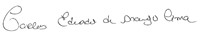 Carlos Eduardo de Araujo Lima